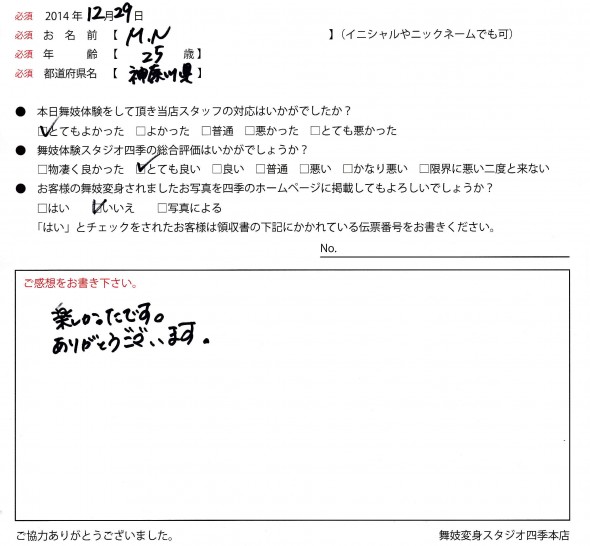 必須 2014年12月29日
必須 お名前【 M.N 】（イニシャルやニックネームでも可）
必須 年齢【 25 歳】
必須 都道府県名【 神奈川県】
● 本日舞妓体験をして頂き当店スタッフの対応はいかがでしたか？
☑とてもよかった □よかった □普通 □悪かった □とても悪かった
● 舞妓体験スタジオ四季の総合評価はいかがでしょうか？
□物凄く良かった ☑とても良い □良い □普通 □悪い □かなり悪い □限界に悪い二度と来ない
● お客様の舞妓変身されましたお写真を四季のホームページに掲載してもよろしいでしょうか？
□はい ☑いいえ □写真による
「はい」とチェックをされたお客様は領収書の下記にかかれている伝票番号をお書きください。
No.
ご感想をお書き下さい。
楽しかったです。
ありがとうございます。
ご協力ありがとうございました。 舞妓変身スタジオ四季本店